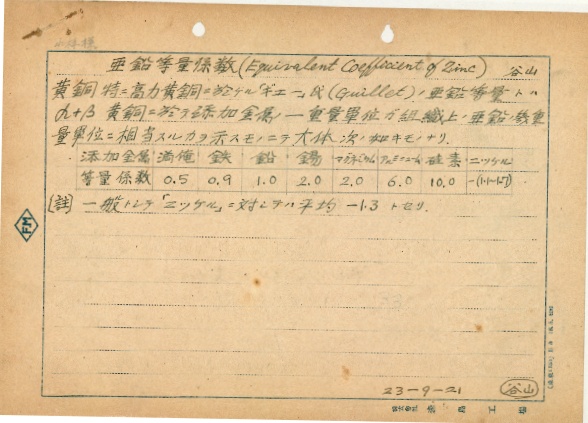 亜鉛等量係数(Equivalent Coefficient of Zinc) 谷山
黄銅特ニ高力黄銅ニ於ケルギエー氏(Guillet)ノ亜鉛等量トハ
α+β黄銅ニ於テ添加金属ノ一重量単位ガ組織上ノ亜鉛ノ幾重
量単位ニ相当スルカヲ示スモノニテ大体次ノ如キモノナリ.
添加金属 満俺 鉄 鉛 錫 マグネシウム アルミニューム 硅素 ニッケル
等量係数 0.5 0.9 1.0 2.0 2.0 6.0 10.0 -(1.1-1.5)
[註] 一般トシテ「ニッケル」ニ対シテハ平均 -1.3 トセリ.
FM
23-9-21 谷山